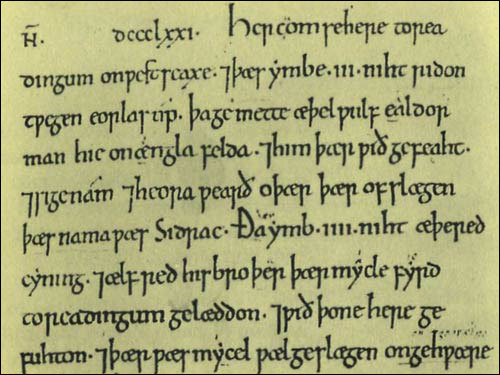 N̄. dccclxxi. Her com se here to rea
dingum on ƿestseaxe. ⁊ þær ymbe .iii. niht ridon
tƿegen eorlas úp. þa ge mette æþel ƿulf ealdor
man hie on ængla felda. ⁊ him þær ƿið gefeaht.
⁊ sige nám ⁊ heora ƿearð oþær þær ofslægen
þær nama ƿæs Sidrac. Ða ymb .iiii. niht æþered
cyning. ⁊ ælfred his broþer þær mycle fyrd
to readingum gelæddon. ⁊ ƿið þone here ge
fuhton. ⁊ þær ƿæs mycel ƿæl geslægen on gehƿære